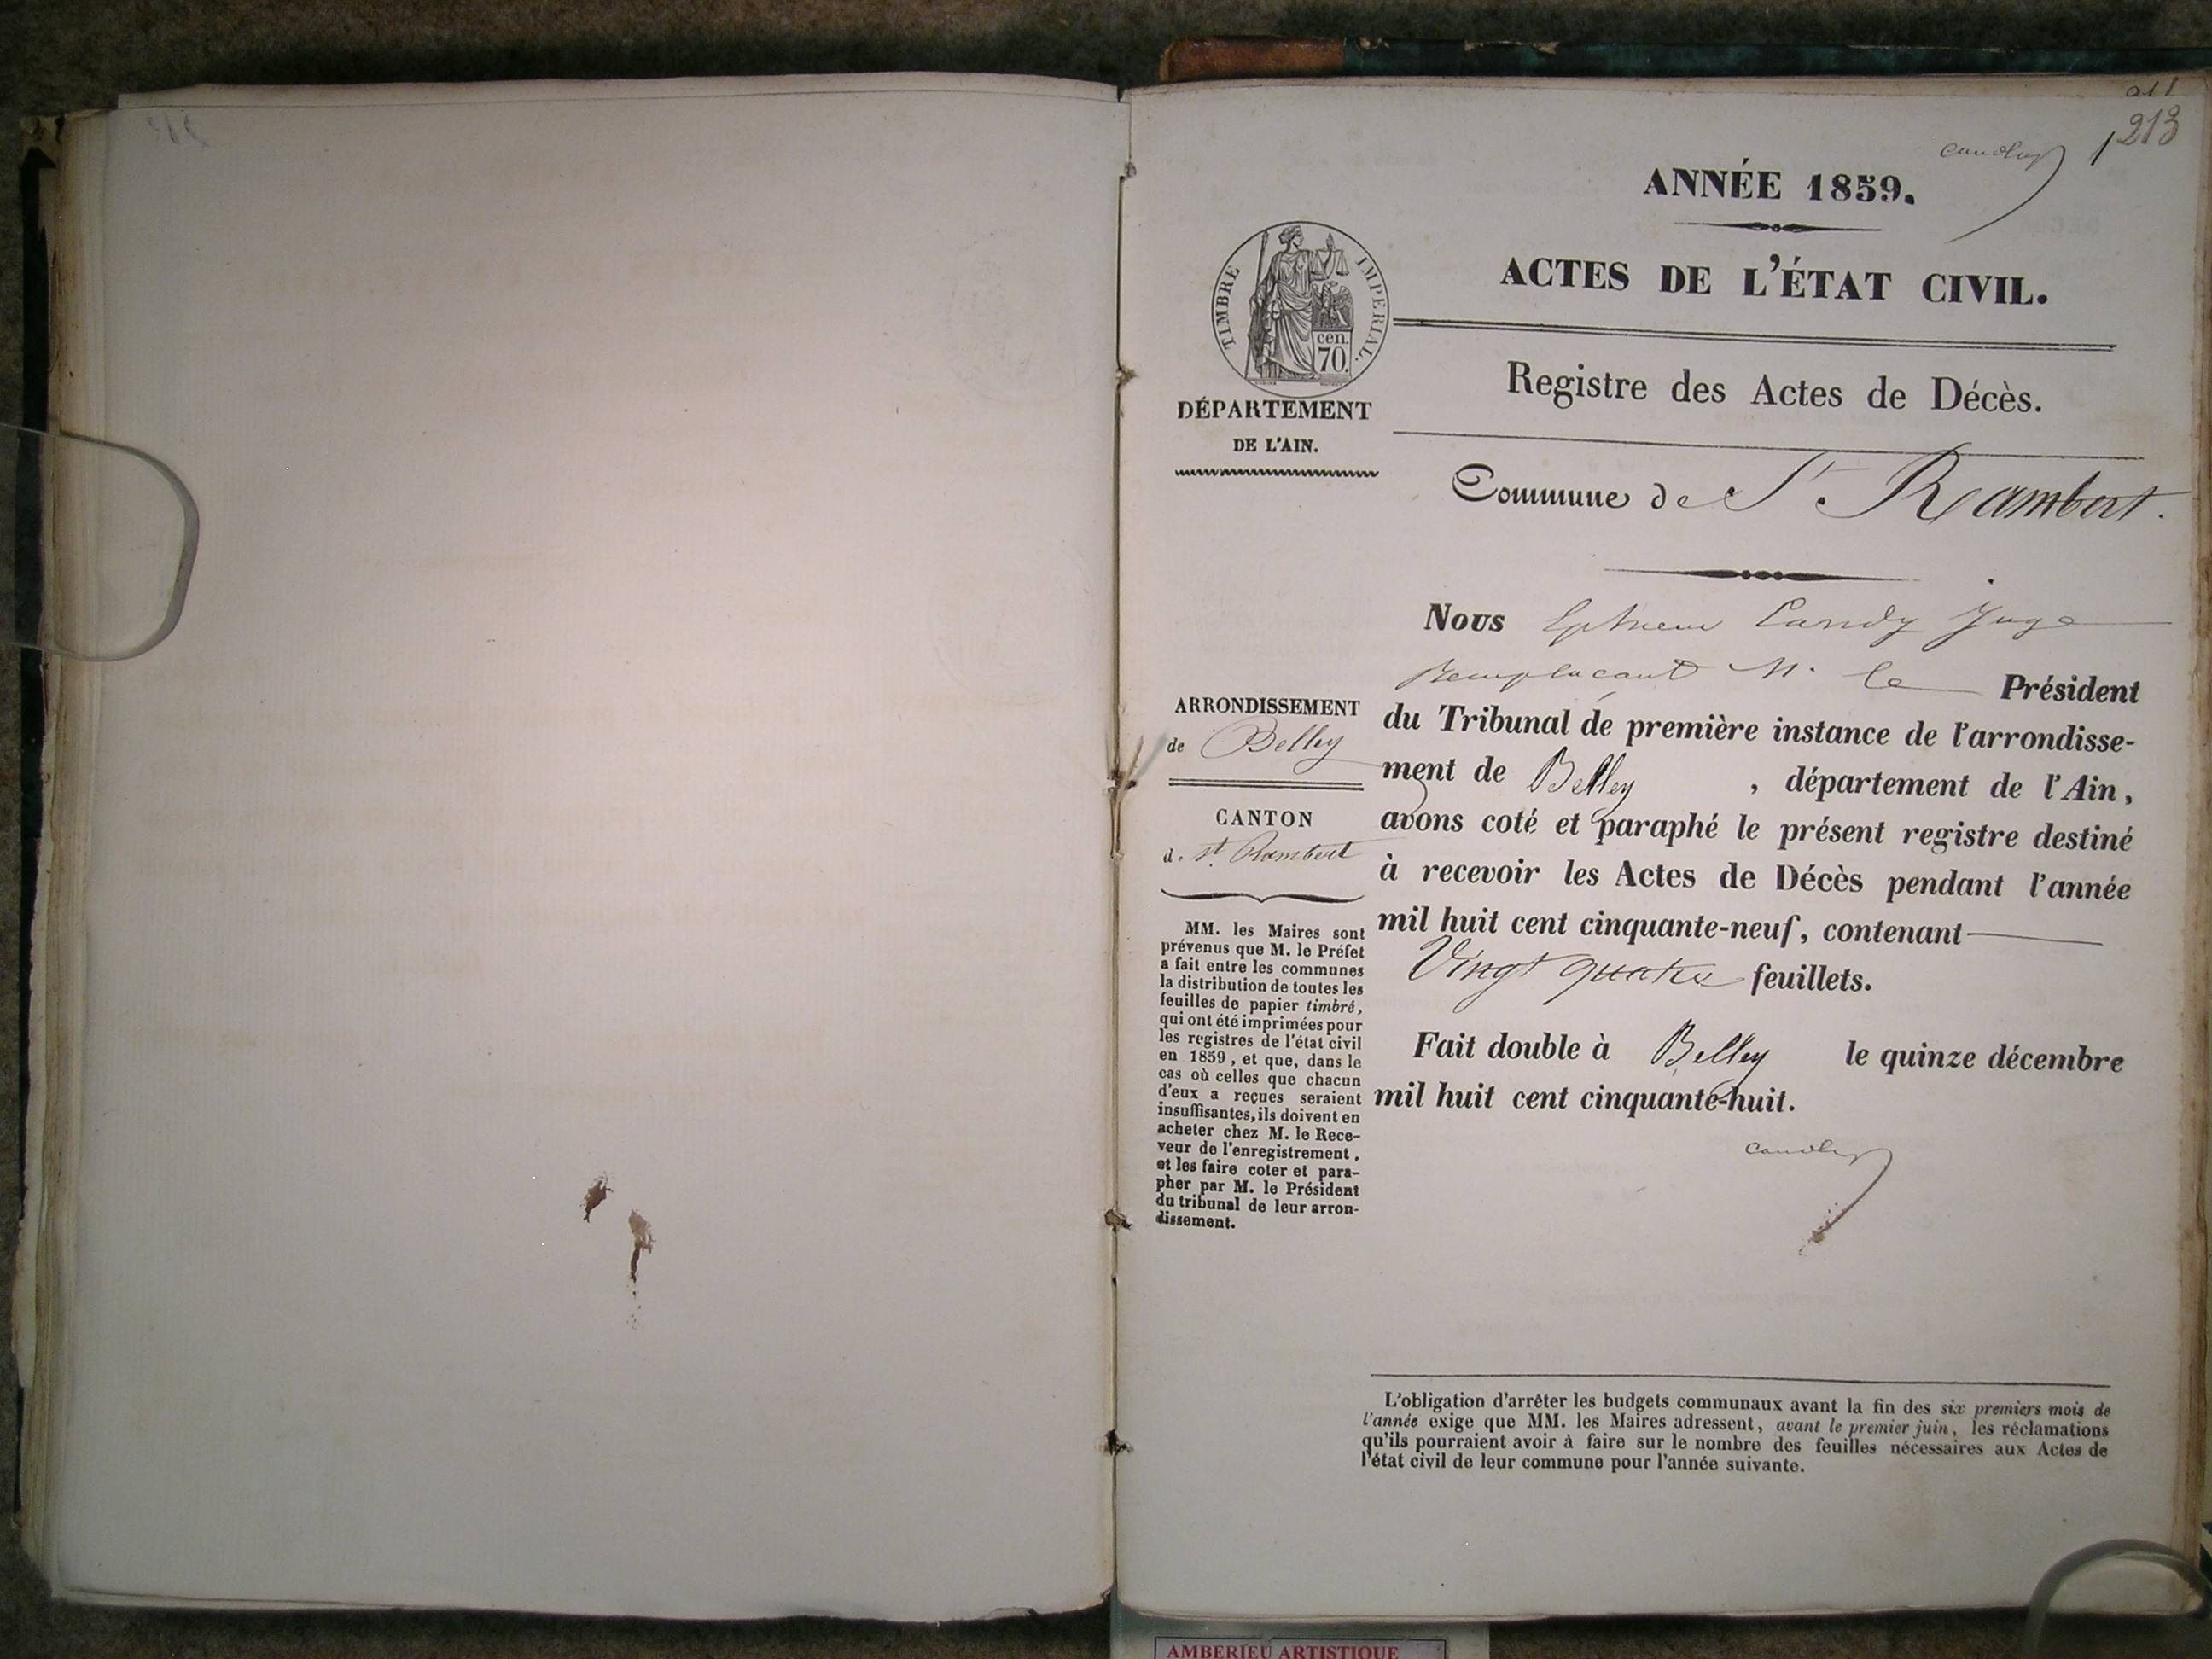 213
1
ANNÉE 1859.
ACTES DE L'ÉTAT CIVIL.
TIMBRE IMPERIAL.
cen.
70.
Registre des Actes de Décès.
DÉPARTEMENT
DE L'AIN.
Commune de St Rambert.
Nous Candy Juge
Remplacant M. le Président
du Tribunal de première instance de l'arrondisse-
ment de Belley, département de l'Ain,
avons coté et paraphé le présent registre destiné
à recevoir les Actes de Décès pendant l'année
mil huit cent cinquante-neuf, contenant
Vingt quatre feuillets.
Fait double à Belley le quinze décembre
mil huit cent cinquante-huit.
ARRONDISSEMENT
de Belley
CANTON
d. St Rambert
MM. les Maires sont
prévenus que M. le Préfet
a fait entre les communes
la distribution de toutes les
feuilles de papier timbré,
qui ont été imprimées pour
les registres de l'état civil
en 1859, et que, dans le
cas où celles que chacun
d'eux a reçues seraient
insuffisantes, ils doivent en
acheter chez M. le Rece-
veur de l'enregistrement,
et les faire coter et para-
pher par M. le Président
du tribunal de leur arron-
dissement.
L'obligation d'arrêter les budgets communaux avant la fin des six premiers mois de
l'année exige que MM. les Maires adressent, avant le premier juin, les réclamations
qu'ils pourraient avoir à faire sur le nombre des feuilles nécessaires aux Actes de
l'état civil de leur commune pour l'année suivante.
AMBERIEU ARTISTIQUE